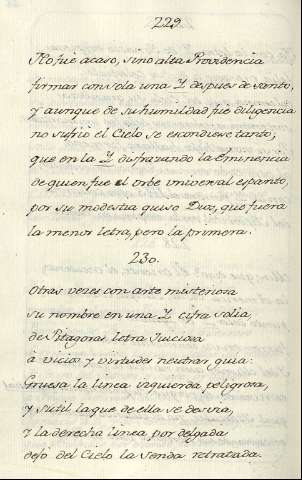 229
No fué acaso, sino alta Providencia
firmar con sola una Y despues de santo,
y aunque de su humildad fué diligencia
no sufrió el Cielo se escondiese tanto;
que en la Y disfrazando la Eminencia
de quien fue el orbe universal espanto,
por su modestia quiso Dios, que fuera
la menor letra, pero la primera.
230.
Otras vezes con arte misteriosa
su nombre en una Y cifra solia,
de Pitagoras letra Juiciosa
à vicios y virtudes neutral guia:
Gruesa la linea izquierda peligrosa,
y sutil la que de ella se desvia,
y la derecha linea por delgada
dejó del Cielo la senda retratada.